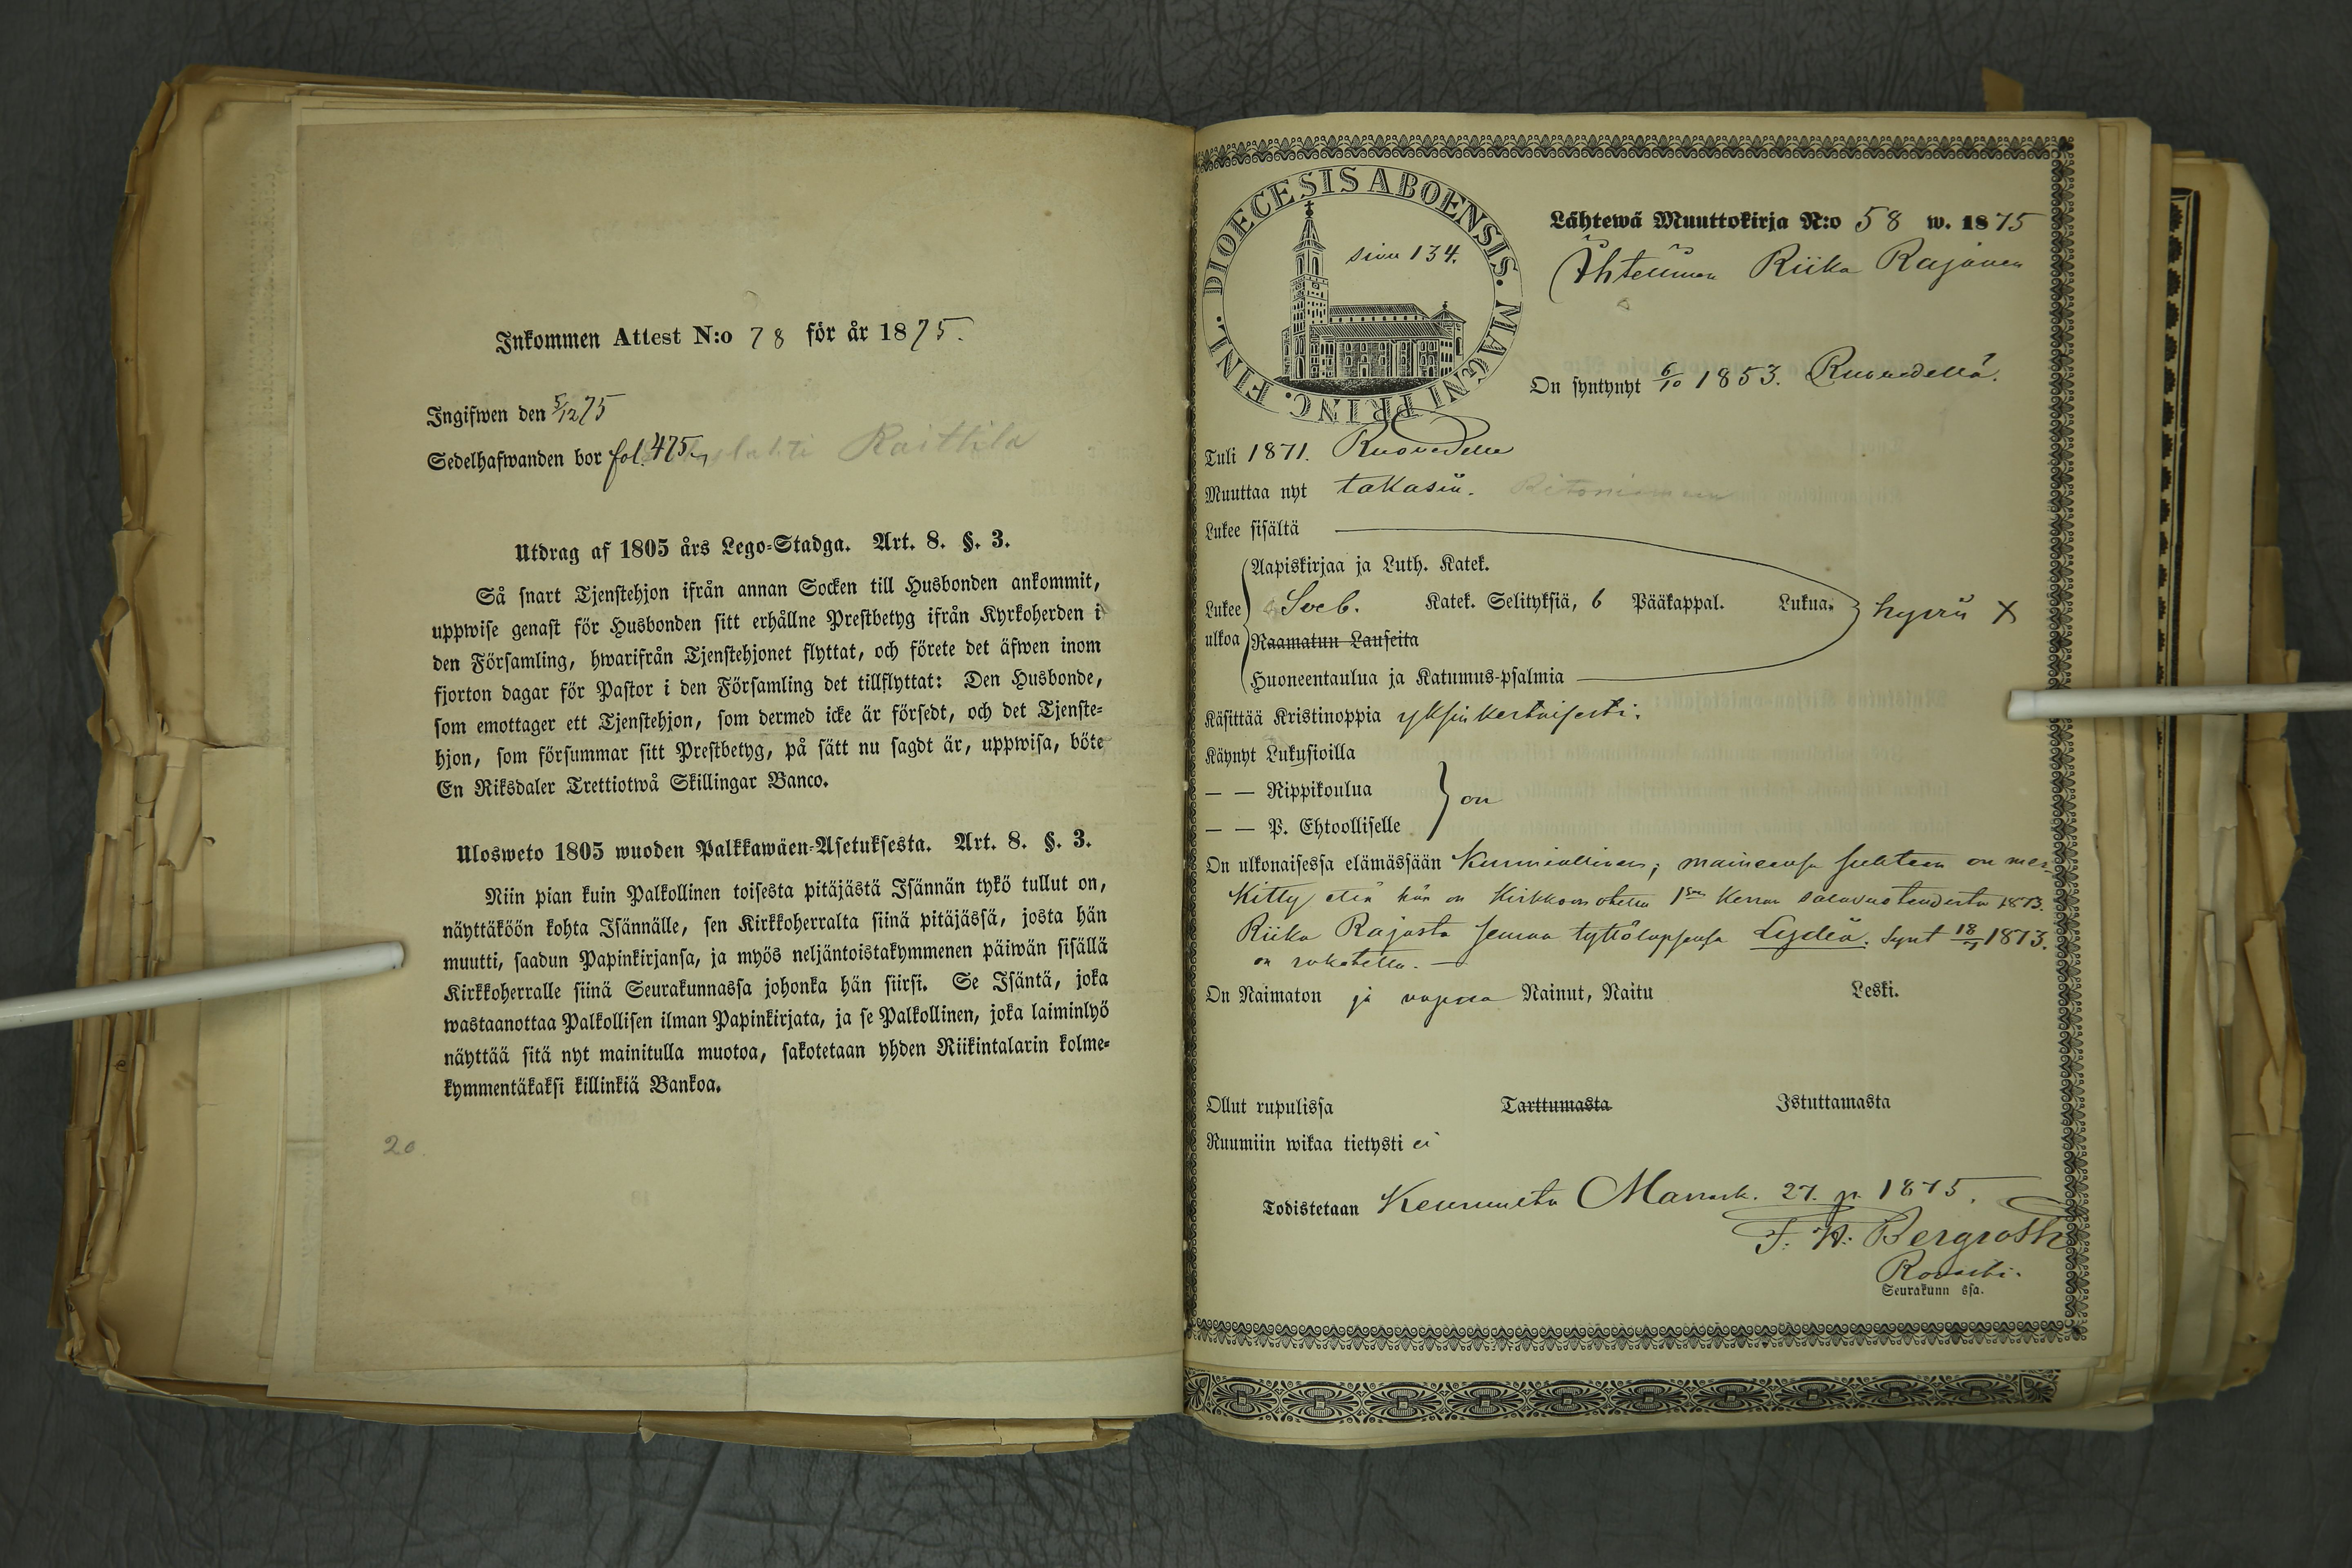 Inkommen Attest N:o 78 för år 1875.
Ingifwen den 5/12 75
Sedelhafwanden bor fol. 475 Raittila
Utdrag af 1805 års Lego-Stadga. Art. 8. §. 3.
Så snart Tjenstehjon ifrån annan Socken till Husbonden ankommit,
uppwise genast för Husbonden sitt erhållne Prestbetyg ifrån Kyrkoherden i
den Församling, hwarifrån Tjenstehjonet flyttat, och förete det äfwen inom
fjorton dagar för Pastor i den Församling det tillflyttat: Den Husbonde,
som emottager ett Tjenstehjon, som dermed icke är försedt, och det Tjenste-
hjon, som försummar sitt Prestbetyg, på sätt nu sagdt är, uppwisa, böte
En Riksdaler Trettiotwå Skillingar Banco.
Ulosweto 1805 wuoden Palkkawäen-Asetuksesta. Art. 8. §. 3.
Niin pian kuin Palkollinen toisesta pitäjästä Isännän tykö tullut on,
näyttäköön kohta Isännälle, sen Kirkkoherralta siinä pitäjässä, josta hän
muutti, saadun Papinkirjansa, ja myös neljäntoistakymmenen päiwän sisällä
Kirkkoherralle siinä Seurakunnassa johonka hän siirsi. Se Isäntä, joka
wastaanottaa Palkollisen ilman Papinkirjata, ja se Palkollinen, joka laiminlyö
näyttää sitä nyt mainitulla muotoa, sakotetaan yhden Riikintalarin kolme-
kymmentäkaksi killinkiä Bankoa.
20.
DIOECESIS ABOENSIS. MAGNI PRINC. FINL.
sivu 134.
Lähtewä Muuttokirja N:o 58 w. 1875
Riika Rajanen
On syntynyt 6/10 1853. Ruovedellä.
Tuli 1871. Ruovedelle
Muuttaa nyt takasin.
Lukee sisältä
Aapiskirjaa ja Luth. Katek.
Lukee ulkoa Sveb. Katek. Selityksiä, 6 Pääkappal. Lukua. hyvin X
Raamatun Lauseita
Huoneentaulua ja Katumus-psalmia
Käsittää Kristinoppia yksinkertaisesti.
Käynyt Lukusioilla
— — Rippikoulua on
— — P. Ehtoolliselle
On ulkonaisessa elämässään Kunniallinen; maineensa suhteen on mer-
kitty että hän on Kirkkoon otettu 1sen kerran salavuoteudesta 1873.
Riika Rajasta seuraa tyttölapsensa Lydia. Synt 18/ 1873.
on rokotettu. —
On Naimaton ja vapaa Nainut, Naitu Leski.
Ollut rupulissa Tarttumasta Istuttamasta
Ruumiin wikaa tietysti ei
Todistetaan Keuruulta Marrask. 27. p. 1875.
F. W. Bergroth
Rovasti.
Seurakunn ssa.